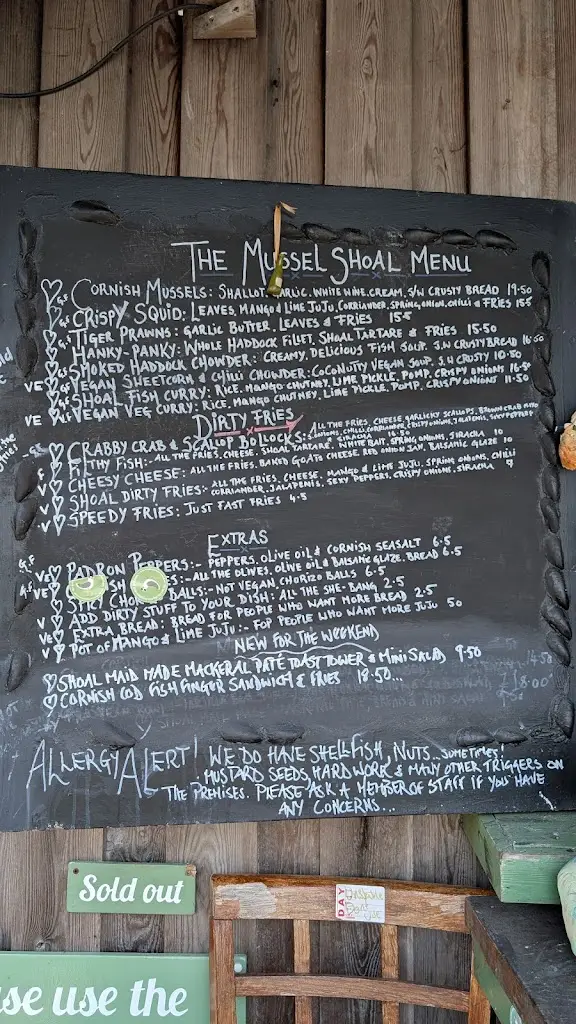 THE MUSSEL SHOAL MENU
G.F CORNISH MUSSELS: SHALLOT, GARLIC, WHITE WINE, CREAM, S/W CRUSTY BREAD 19.50
CRISPY SQUID: LEAVES, MANGO & LIME JUJU, CORRIANDER, SPRING ONION, CHILLI & FRIES 15.5
G.F TIGER PRAWNS: GARLIC BUTTER, LEAVES & FRIES 15.5
HANKY-PANKY: WHOLE HADDOCK FILLET, SHOAL TARTARE & FRIES 15.50
SMOKED HADDOCK CHOWDER: CREAMY, DELICIOUS FISH SOUP, S.W CRUSTY BREAD 16.50
VE VEGAN SWEETCORN & CHILLI CHOWDER: COCONUTTY VEGAN SOUP, S.W CRUSTY 10.50
G.F SHOAL FISH CURRY: RICE, MANGO CHUTNEY, LIME PICKLE, POMP, CRISPY ONIONS 16.50
VE VEGAN VEG CURRY: RICE, MANGO CHUTNEY, LIME PICKLE, POMP, CRISPY ONIONS 11.50
DIRTY FRIES
CRABBY CRAB & SCALLOT BOLLOCKS: ALL THE FRIES, CHEESE, GARLICKY SCALLOPS, BROWN CRAB
S.ONIONS, CHILLI, CORRIANDER, CRISPY ONIONS, JALAPENIS,
FILTHY FISH:- ALL THE FRIES, CHEESE, SHOAL TARTARE, WHITE BAIT, SPRING ONIONS, SIRACHA 10
V CHEESY CHEESE: ALL THE FRIES, BAKED GOATO CHEESE, RED ONION JAM, BALSAMIC GLAZE 10
V SHOAL DIRTY FRIES:- ALL THE FRIES, CHEESE, MANGO & LIME JUJU, SPRING ONIONS, CHILLI
CORRIANDER, JALAPENIS, SEXY PEPPERS, CRISPY ONIONS, SIRACHA 9
V SPEEDY FRIES: JUST FAST FRIES 4.5
EXTRAS
VE PADRON PEPPERS:- PEPPERS, OLIVE OIL & CORNISH SEASALT 6.5
VE :- ALL THE OLIVES, OLIVE OIL & BALSAMIC GLAZE, BREAD 6.5
BALLS:- NOT VEGAN, CHORIZO BALLS 6.5
V ADD DIRTY STUFF TO YOUR DISH: ALL THE SHE-BANG 2.5
VE EXTRA BREAD: BREAD FOR PEOPLE WHO WANT MORE BREAD 2.5
V POT OF MANGO & LIME JUJU:- FOR PEOPLE WHO WANT MORE JUJU 50
NEW FOR THE WEEKEND
SHOAL MAID MADE MACKERAL PATÉ TOAST TOWER & MINI SALAD 9.50
CORNISH COD FISH FINGER SANDWICH & FRIES 18.50...
ALLERGY ALERT! WE DO HAVE SHELLFISH, NUTS... SOMETIMES!
MUSTARD SEEDS, HARD WORK & MANY OTHER TRIGGERS ON
THE PREMISES. PLEASE ASK A MEMBER OF STAFF IF YOU HAVE
ANY CONCERNS...
Sold out
se use the